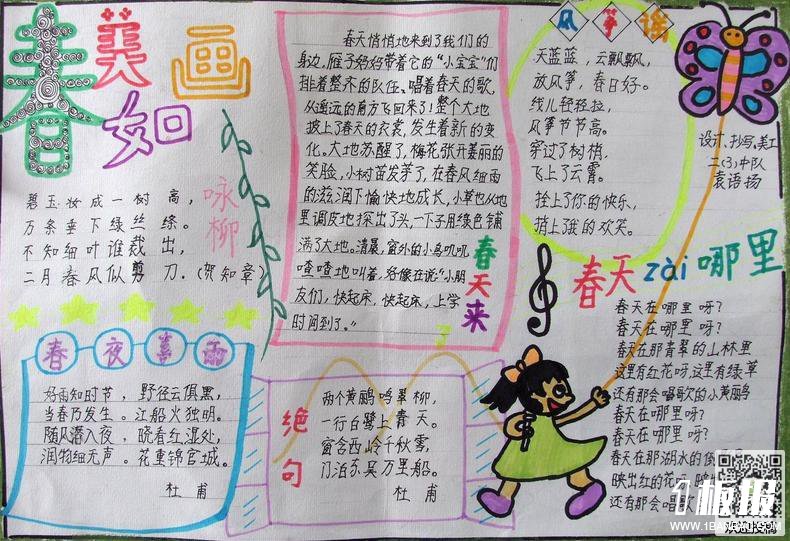 春美如画
碧玉妆成一树高，
万条垂下绿丝绦。
不知细叶谁裁出，
二月春风似剪刀.(贺知章)
咏柳
春夜喜雨
好雨知时节，野径云俱黑，
当春乃发生。江船火独明。
随风潜入夜，晓看红湿处，
润物细无声。花重锦官城。
杜甫
春天悄悄地来到了我们的
身边,雁子妈妈带着它的“小宝宝”们
排着整齐的队伍、唱着春天的歌,
从遥远的南方飞回来了!整个大地
披上了春天的衣裳,发生着新的变
化。大地苏醒了,梅花张开美丽的
笑脸,小树苗发芽了,在春风细雨
的滋润下愉快地成长,小草也从地
里调皮地探出了头,一下子用绿色铺
满了大地。清晨,窗外的小鸟叽叽
喳喳地叫着,好像在说:“小朋
友们,快起床,快起床,上学
时间到了。”
春天来
绝句
两个黄鹂鸣翠柳,
一行白鹭上青天。
窗含西岭千秋雪,
门泊东吴万里船。
杜甫
风筝谣
天蓝蓝,云飘飘,
放风筝,春日好。
线儿轻轻拉,
风筝节节高。
穿过了树梢,
飞上了云霄。
拴上了你的快乐,
捎上了我的欢笑。
设计、抄写、美工
二(3)中队
袁语扬
春天zài哪里
春天在哪里呀?
春天在哪里呀?
春天在那青翠的山林里
这里有红花呀这里有绿草
还有那会唱歌的小黄鹂鸟
春天在哪里呀?
春天在哪里呀?
春天在那湖水的倒
映出红的花
还有那会唱
1板报
WWW.1BANBAO.COM